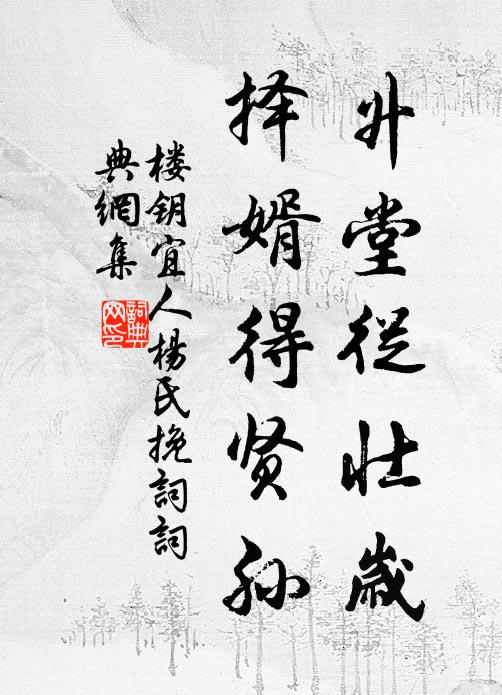 升堂從壮歲
择婿得贤孙
楼钥宜人楊氏挽詞詞
典網集
詞典
网印